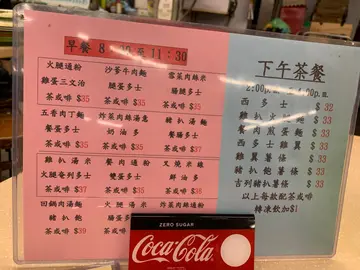 早餐 8:00 至 11:30
火腿通粉 沙爹牛肉麵 雪菜肉絲米
雞蛋三文治 腿蛋多士 腸腿多士
茶或啡 $35 茶或啡 $35 茶或啡 $35
五香肉丁麵 炸菜肉絲湯意 豬扒湯麵
餐蛋多士 奶油多 餐腸多士
茶或啡 $35 茶或啡 茶或啡
雞扒湯米 餐肉通粉 叉燒米雞
火腿奄列多士 雙蛋多士 鮮油多
茶或啡 茶或啡 $35 茶或啡
回鍋肉湯麵 火腿湯米 炸菜肉絲通粉
豬扒飽 腸蛋多士
茶或啡 $39 茶或啡 茶或啡
下午茶餐
西多士 $32
$33
餐肉煎蛋麵 $33
西多士雞翼 $33
雞翼薯條 $33
豬扒薯條 $33
吉列豬扒薯條 $33
以上每款配茶或啡
轉凍飲加$1
ZERO SUGAR
Coca-Cola